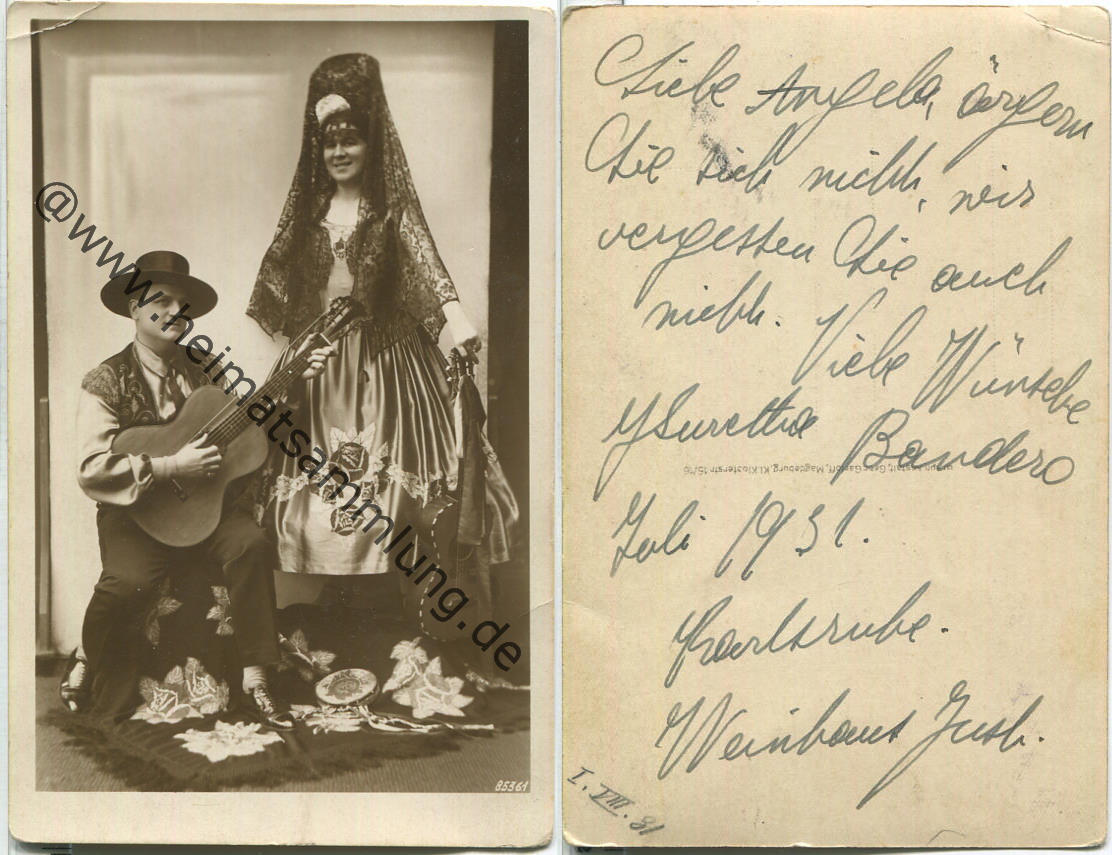 @www.heimatsammlung.de
85361
Liebe Angela, ärgern
Sie sich nicht, wir
vergessen Sie auch
nicht. Viele Wünsche
Bandero
Juli 1931.
Karlsruhe.
Weinhaus Just.
I. VIII. 31
Gebr. Garloff, Magdeburg, Kl. Klosterstr. 15/16